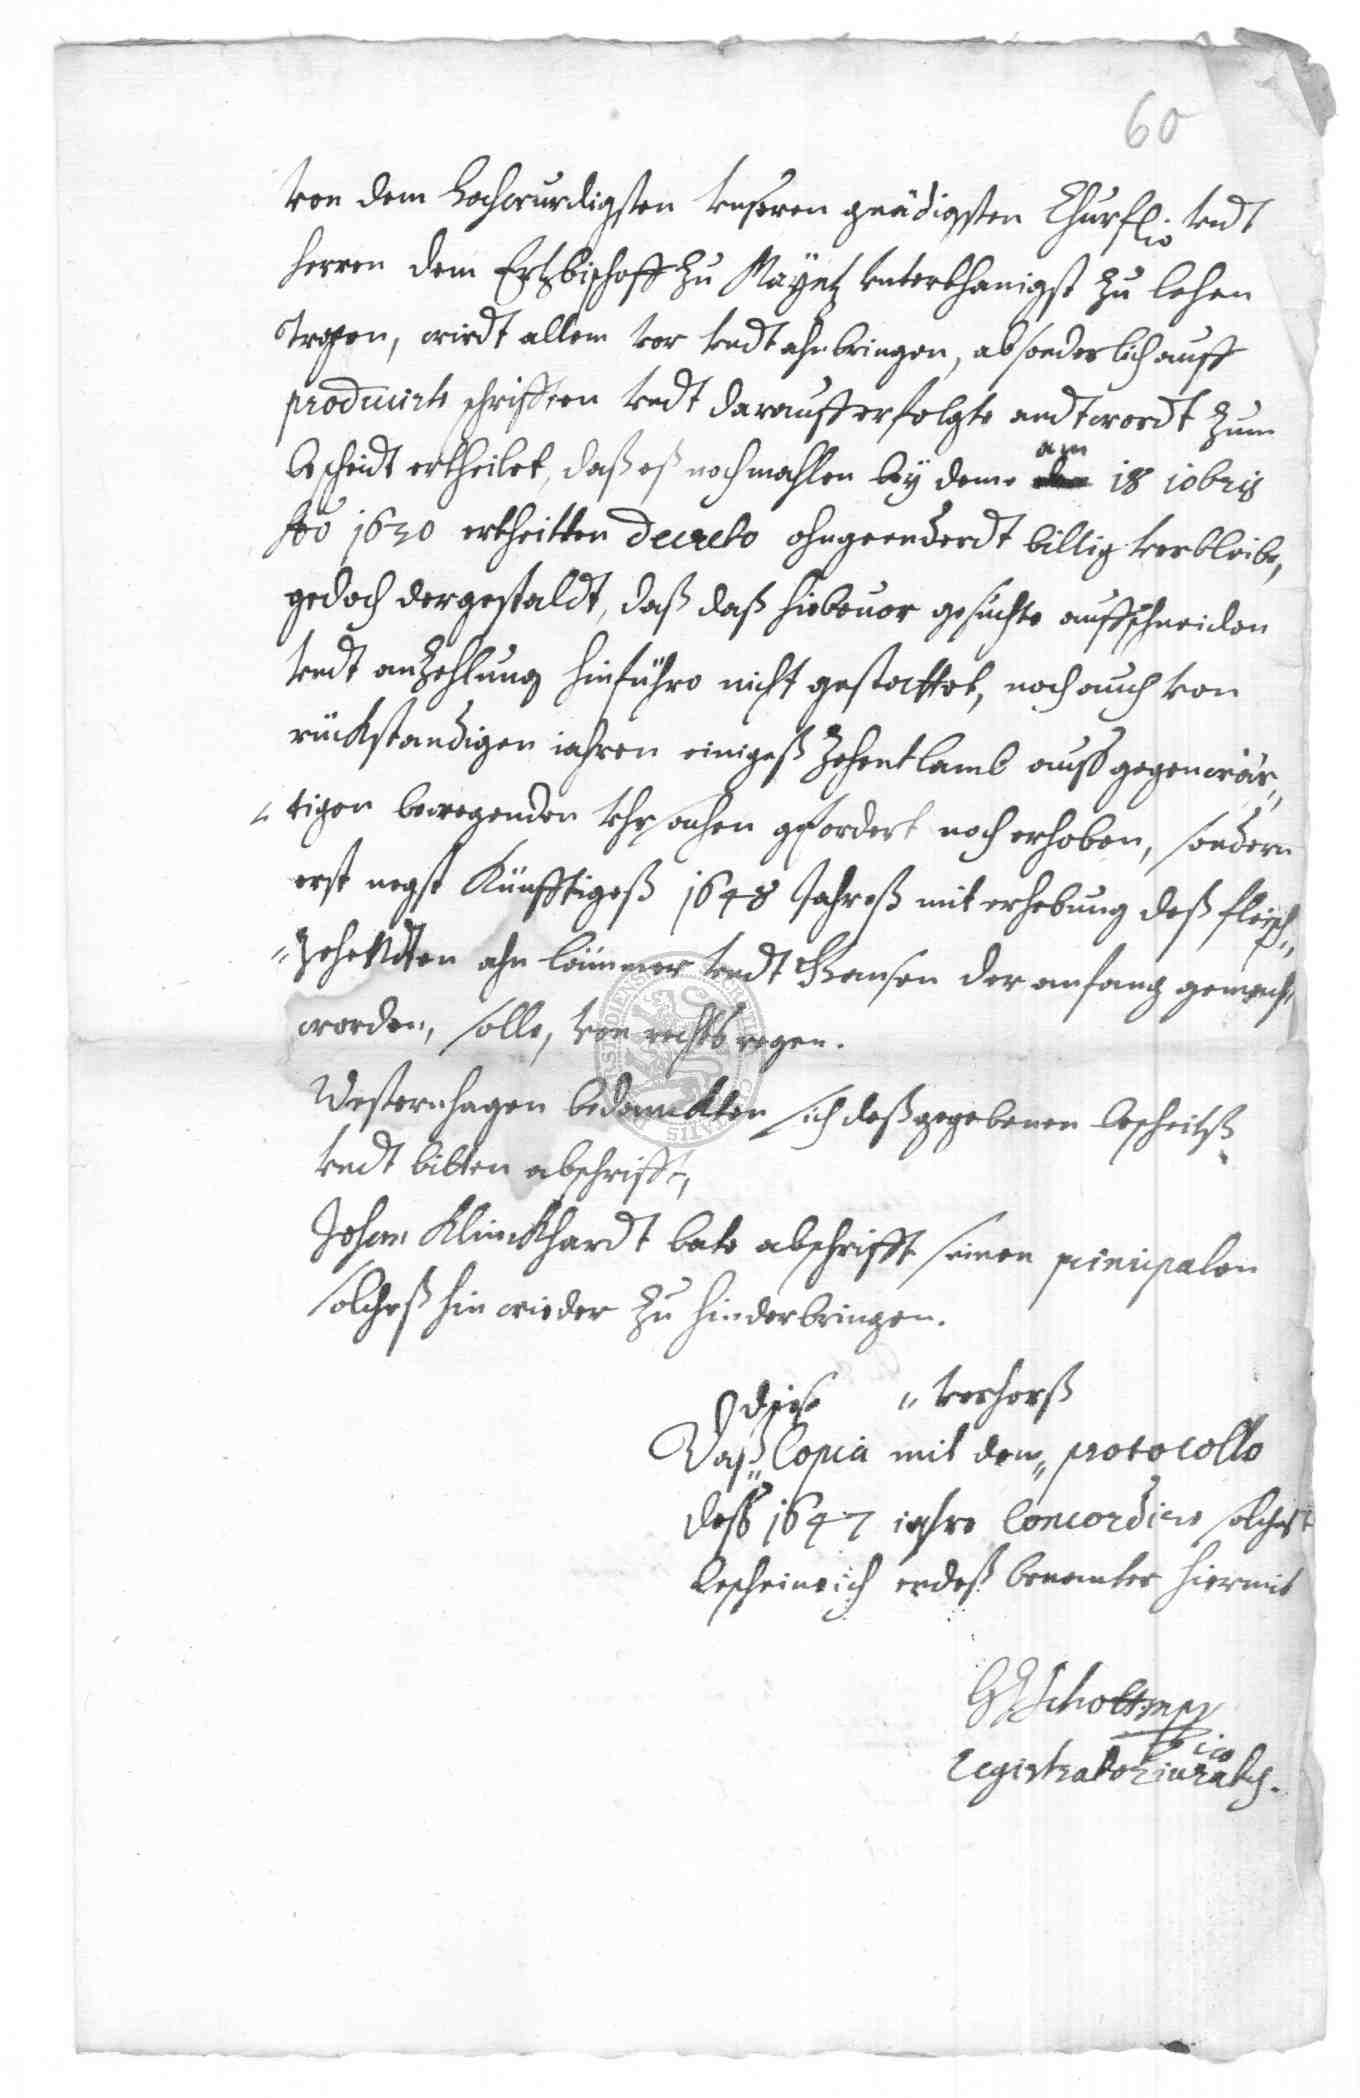 60
von dem Hochwurdigsten unseren gnädigsten Churfl. undt
herren dem Ertzbischoff zu Mayntz unterthanigst zu lehen
tragen, wirdt allem vor undt ahnbringen, absonderlich auff
producirte schrifften undt darauff erfolgte andtwordt zum
bescheidt ertheilet, daß eß nochmahlen bey deme am 18 10bris
Ao 1630 ertheilten Decreto ohngeenderdt billig verbleibe,
gedoch dergestaldt, daß daß hiebevor gesuchte auffschneiden
undt anzehlung hinführo nicht gestattet, noch auch von
rückstandigen iahren einigeß Zehentlamb auß gegenwär„
„tigen bewegenden uhrsachen gefordert noch erhoben, sondern
erst negst Künfftigeß 1648 Jahreß mit erhebung deß fleisch„
„Zehendten ahn lämmer undt Gansen der anfang gemacht
worden, solle, von rechts wegen.
Westernhagen bedanckten sich deß gegebenen bescheidtß
undt bitten abschrifft,
Johan Klinckhardt bate abschrifft seinen principalen
solcheß hin wieder zu hinderbringen.
diese „ verhorß
Daß Copia mit dem„ protocollo
deß 1647 iahrs Concordire solcheß
bescheine ich endeß benanter hiermit
registrator iuratg.